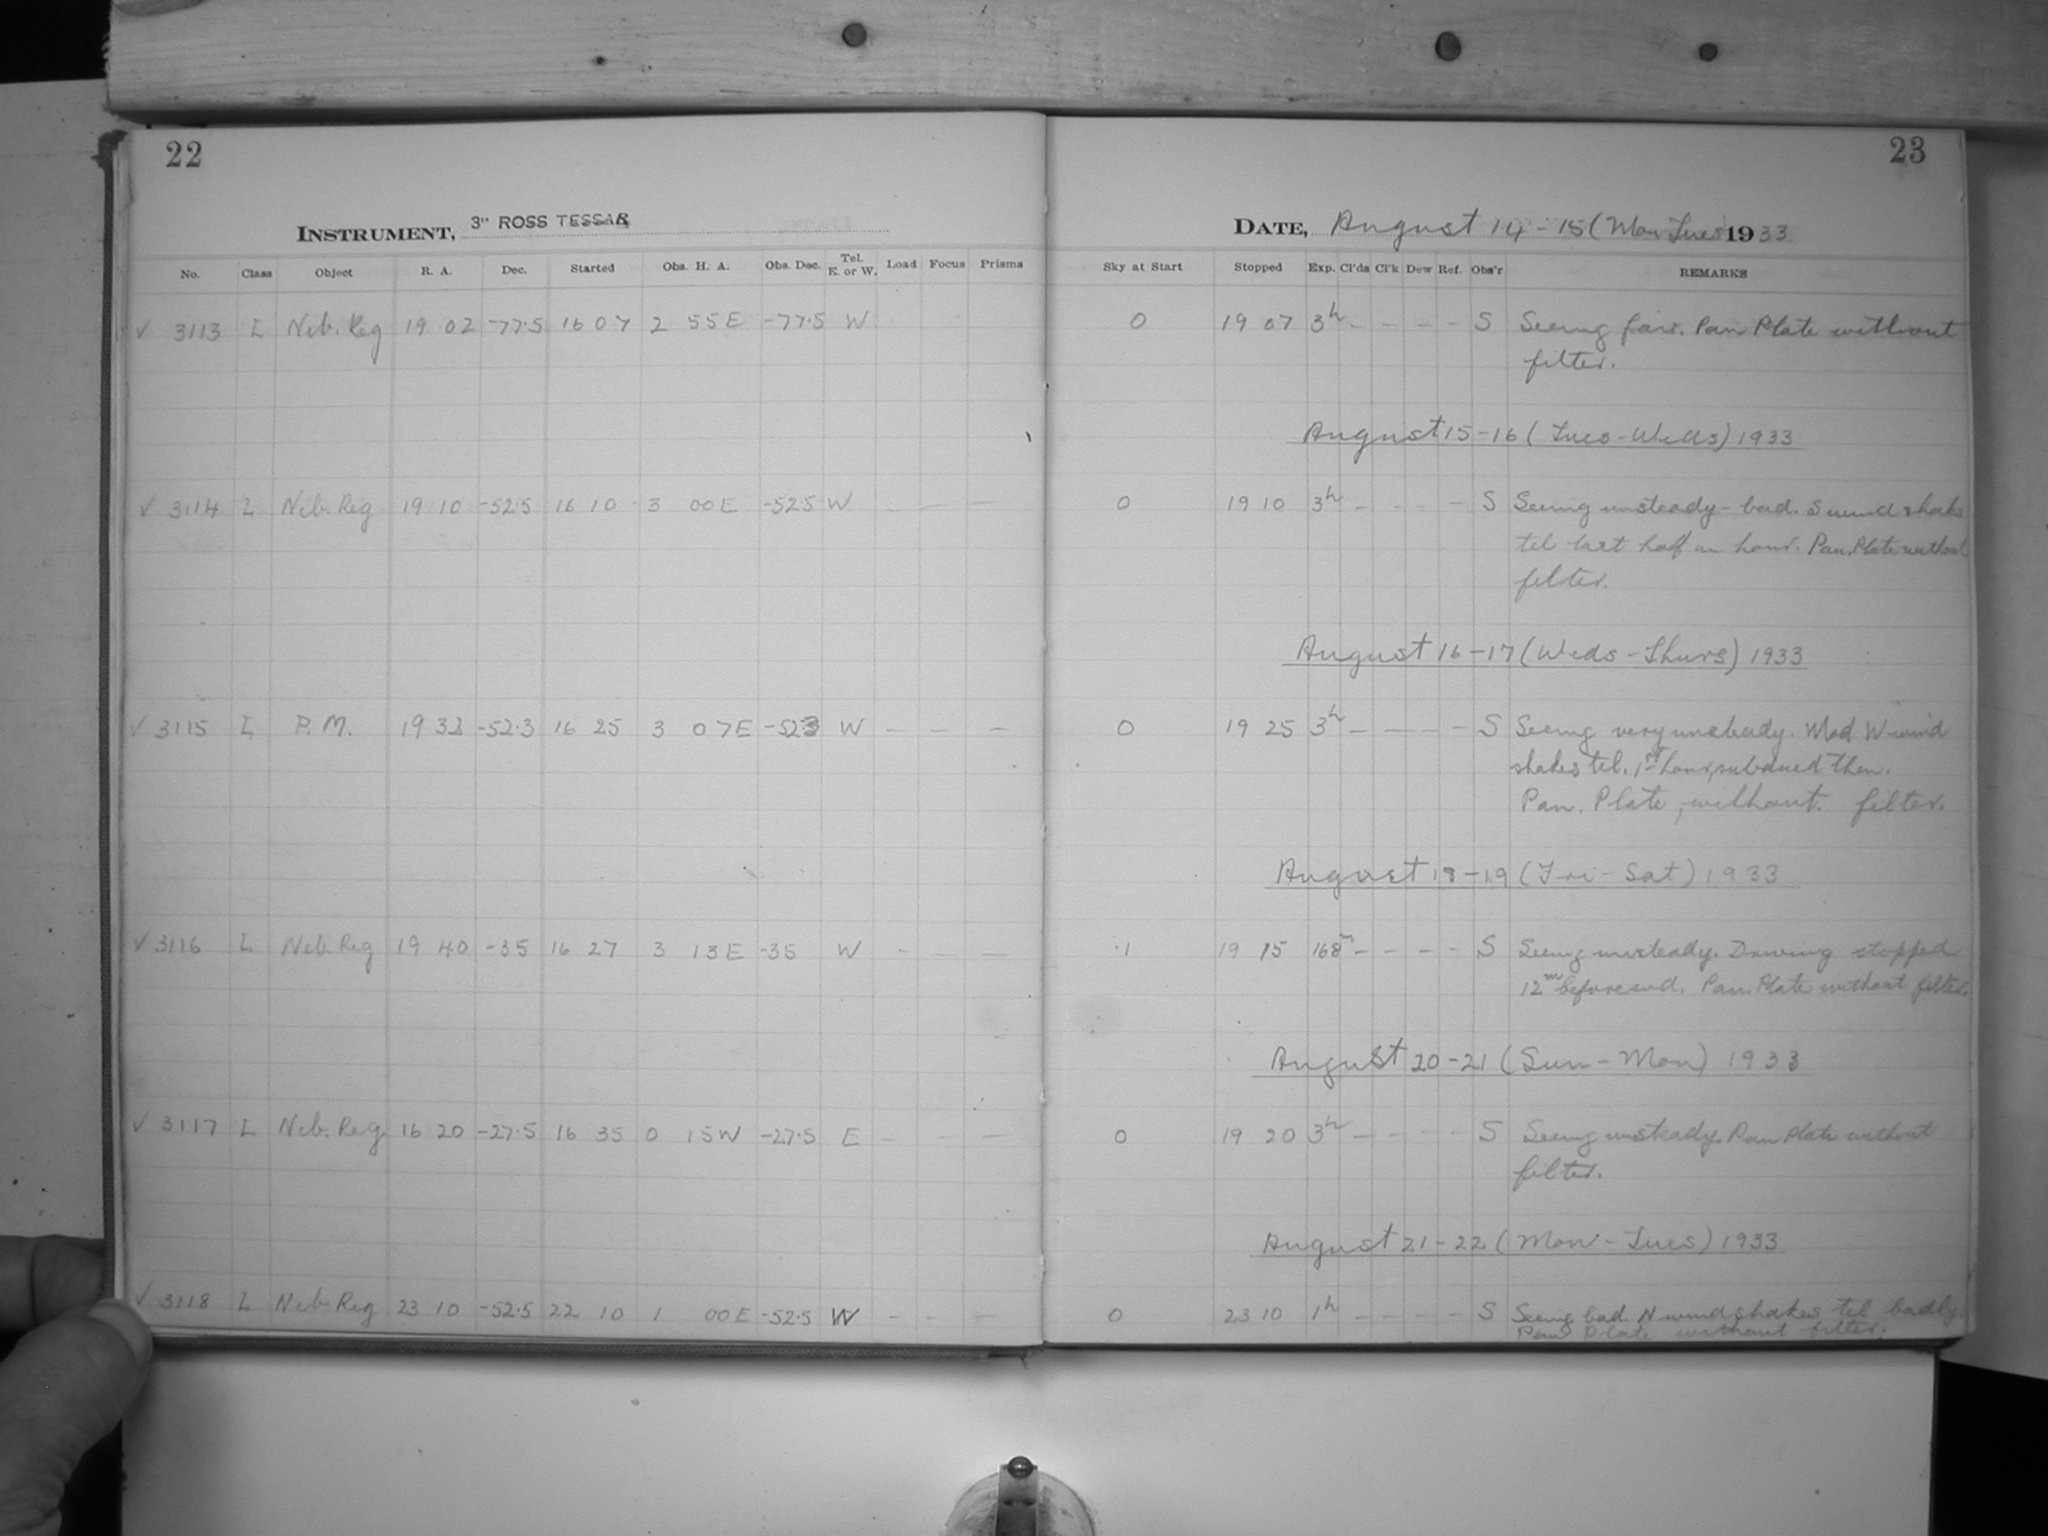 22
INSTRUMENT, 3" ROSS TESSAR
No. Class Object R. A. Dec. Started Obs. H. A. Obs. Dec. Tel. E. or W. Load Focus Prisms
✓ 3113 L Neb. Reg 19 02 -77.5 16 07 2 55 E -77.5 W
✓ 3114 L Neb. Reg 19 10 -52.5 16 10 3 00 E -52.5 W - - -
✓ 3115 L P. M. 19 32 -52.3 16 25 3 07 E -52.3 W - - -
✓ 3116 L Neb. Reg 19 40 -35 16 27 3 13 E -35 W - - -
✓ 3117 L Neb. Reg. 16 20 -27.5 16 35 0 15 W -27.5 E - - -
✓ 3118 L Neb Reg 23 10 -52.5 22 10 1 00 E -52.5 W - - -
23
DATE, August 14-15 (Mon Tues 1933
Sky at Start Stopped Exp. Cl'ds Cl'k Dew Ref. Obs'r REMARKS
0 19 07 3h - - - - S Seeing fair. Pan Plate without
filter.
August 15-16 (Tues-Weds) 1933
0 19 10 3h - - - - S Seeing unsteady - bad. S wind shakes
tel last half an hour. Pan. Plate without
filter.
August 16-17 (Weds-Thurs) 1933
0 19 25 3h - - - - S Seeing very unsteady. Mod W wind
shakes tel. 1st hour, subdued then.
Pan. Plate, without. filter.
August 18-19 (Fri-Sat) 1933
.1 19 15 168m - - - - S Seeing unsteady. Driving stopped
12m before end. Pan. Plate without filter.
August 20-21 (Sun-Mon) 1933
0 19 20 3h - - - - S Seeing unsteady. Pan Plate without
filter.
August 21-22 (Mon-Tues) 1933
0 23 10 1h - - - - S Seeing bad. N wind shakes tel badly.
Pan Plate without filter.